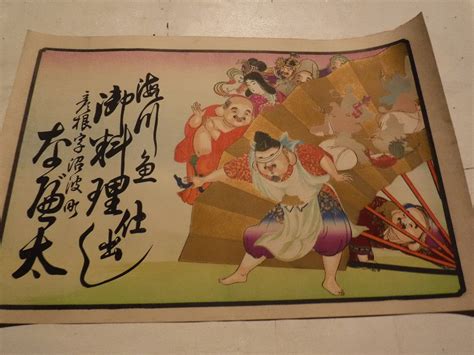 海川魚
御料理仕出し
彦根字沼波町
なべ太